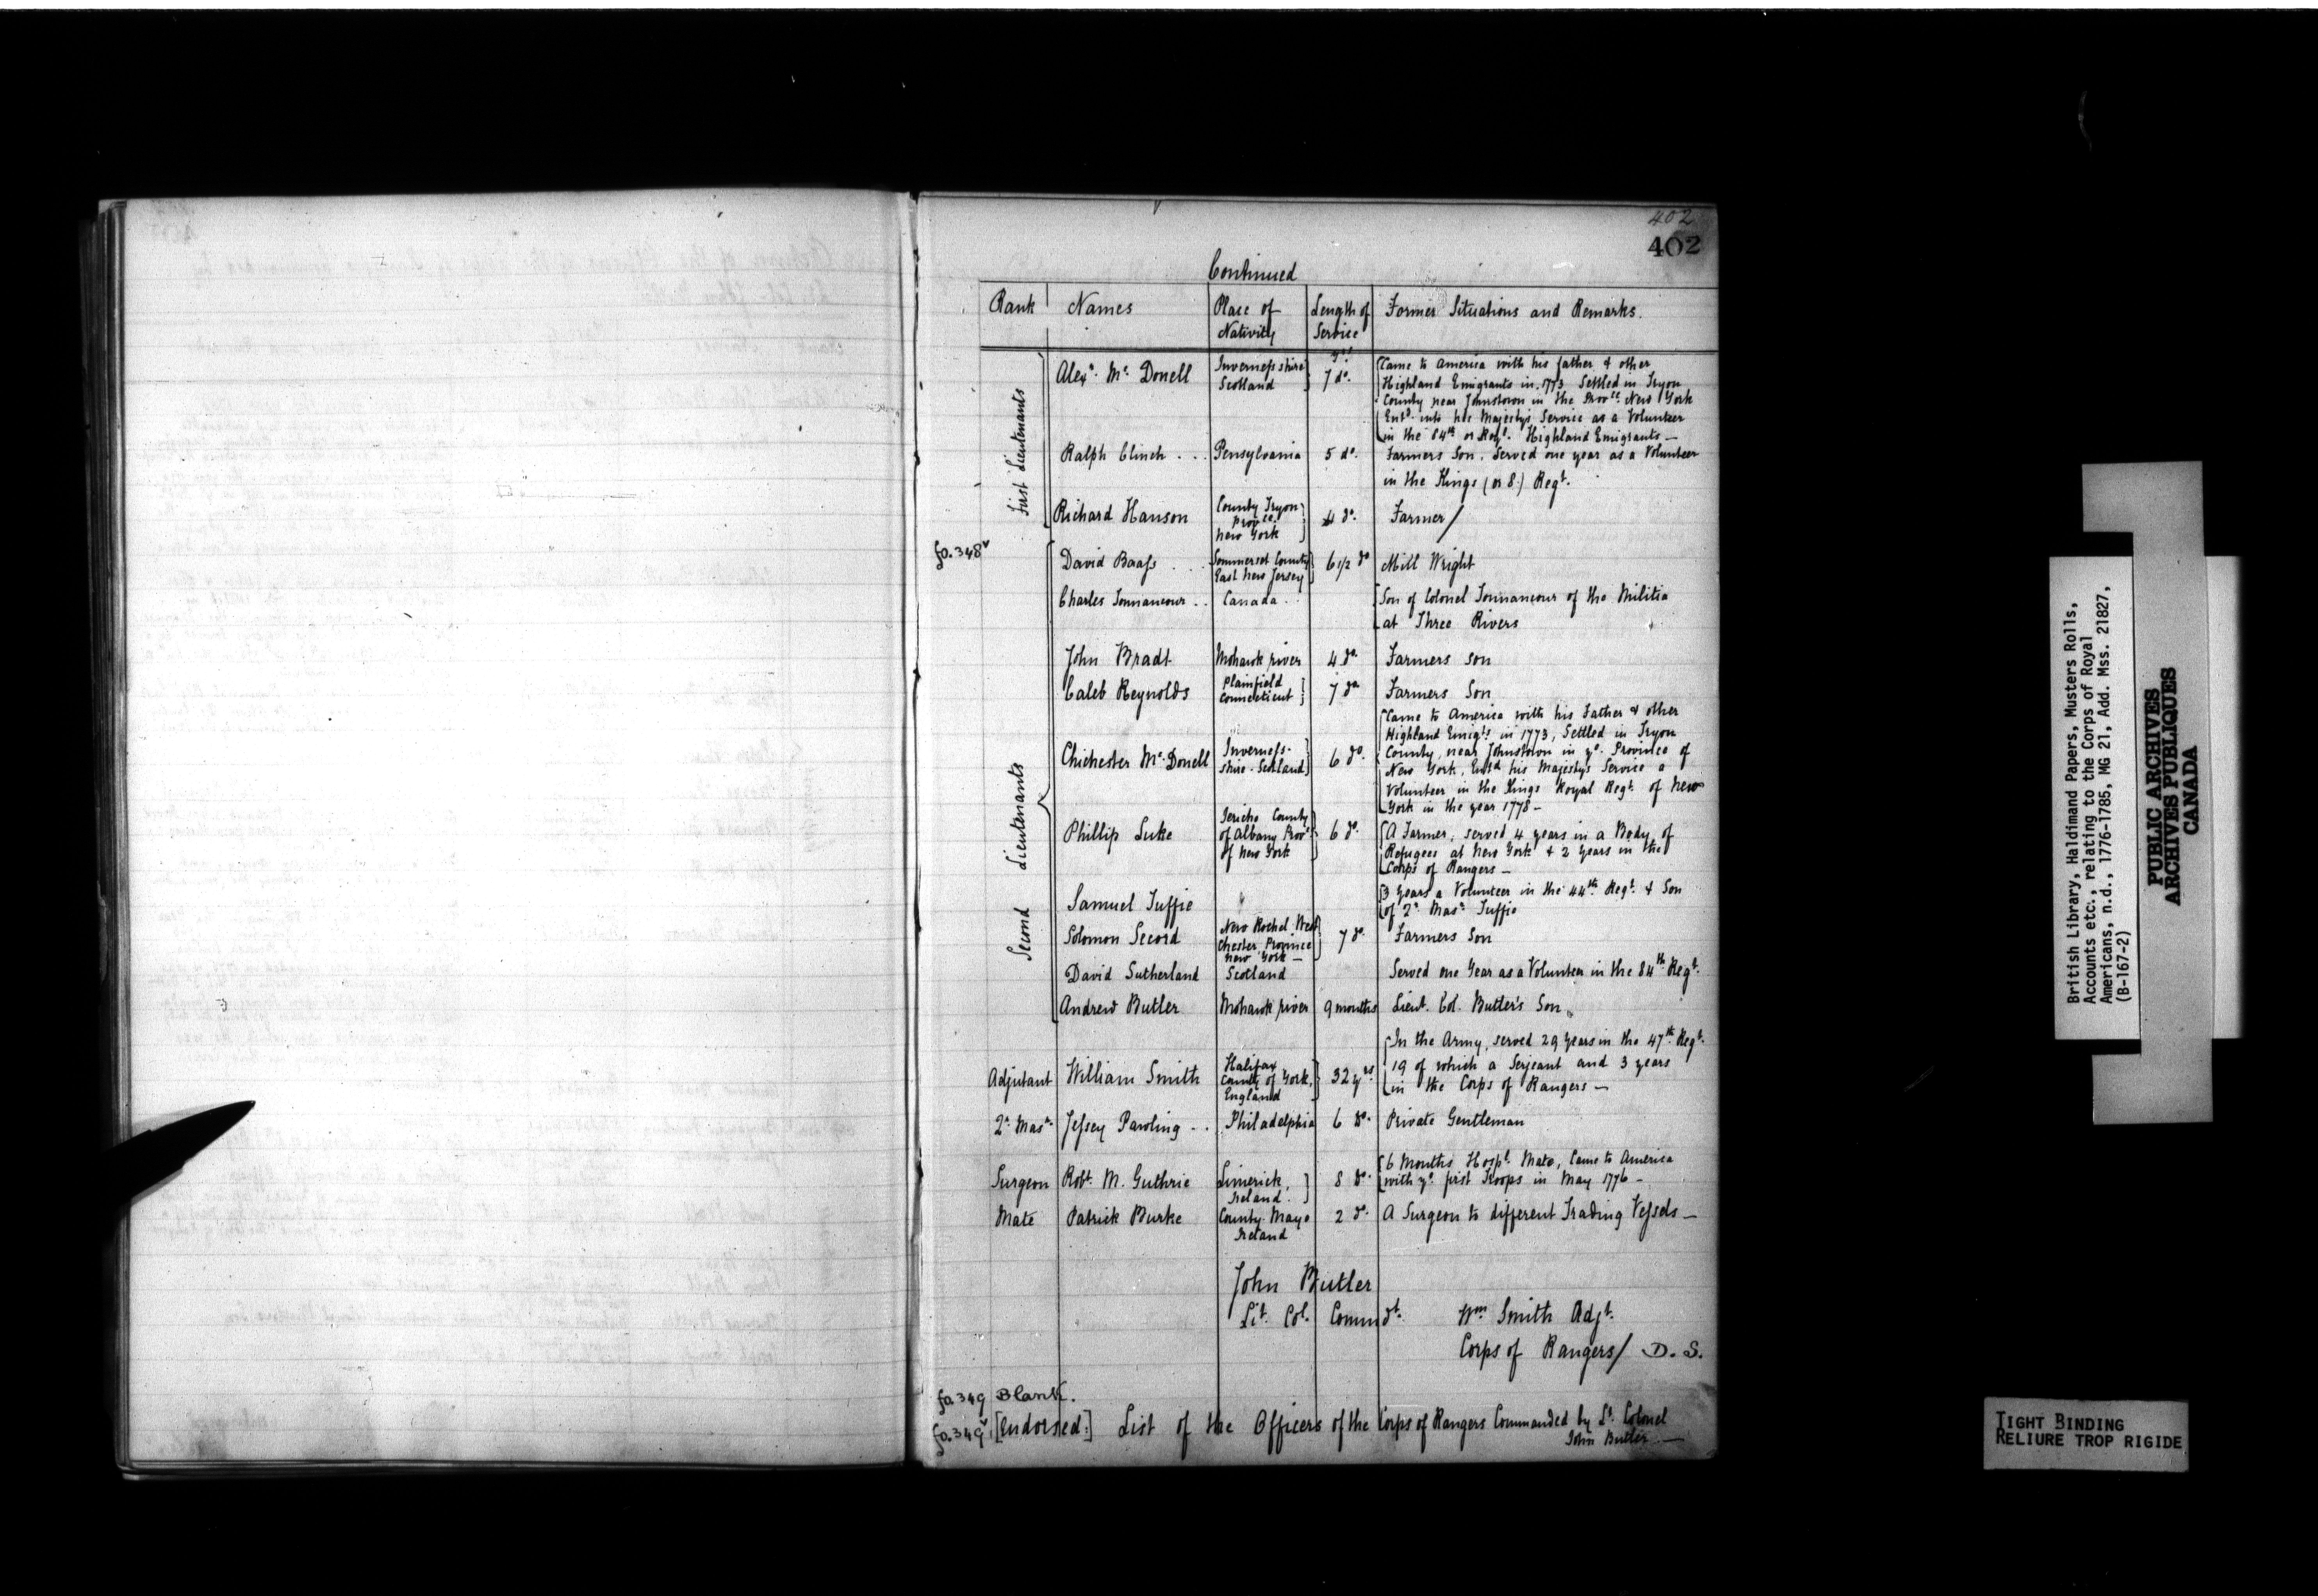 402
402
Continued
Rank Names Place of Nativity Length of Service Former Situations and Remarks.
First Lieutenants
Alexr. Mc. Donell Invernessshire Scotland } 7 do. {Came to America with his father & other
Highland Emigrants in 1773 Settled in Tryon
County near Johnstown in the Provce. New York
Entd. into his Majestys Service as a Volunteer
in the 84th or Royl. Highland Emigrants —
Ralph Clinch . . . Pensylvania 5 do. Farmers Son. Served one year as a Volunteer
in the Kings (or 8.) Regt.
Richard Hanson County Tryon Provce. New York } 4 do. Farmer/
fo. 348v
Second Lieutenants
David Baass . . . Sommerset County East New Jersey } 6 1/2 do Mill Wright
Charles Tonnancour . . Canada . . {Son of Colonel Tonnancour of the Militia
at Three Rivers
John Bradt Mohawk river 4 do. Farmers son
Caleb Reynolds Plainfield Connecticut } 7 do Farmers Son
Chichester Mc. Donell Inverness-shire - Scotland } 6 do. {Came to America with his Father & other
Highland Emigts in 1773, Settled in Tryon
County, near Johnstown in ye. Province of
New York, Entd his Majestys Service a
Volunteer in the Kings Royal Regt. of New
York in the year 1778 —
Phillip Luke Jericho County of Albany Provce of New York } 6 do. {A Farmer, served 4 years in a Body of
Refugees at New York & 2 years in the
Corps of Rangers —
Samuel Tuffie {3 years a Volunteer in the 44th. Regt. & Son
of 2r Masr Tuffie
Solomon Secord New Rochel West Chester Province New York — } 7 do. Farmers Son
David Sutherland Scotland Served one Year as a Volunteer in the 84th Regt.
Andrew Butler Mohawk river 9 months Lieut. Col. Butler's Son
Adjutant William Smith Halifax County of York, England } 32 yrs {In the Army, served 29 years in the 47th Regt.
19 of which a Serjeant and 3 years
in the Corps of Rangers —
2r. Masr. Jessey Pawling . . Philadelphia 6 do. Private Gentleman
Surgeon Robt. M. Guthrie Limerick, Ireland. } 8 do. {6 Months Hospl. Mate, Came to America
with ye. first Troops in May 1776 —
Mate Patrick Burke County Mayo Ireland 2 do. A Surgeon to different Trading Vessels —
John Butler
Lt. Col. Commdt. Wm Smith Adjt.
Corps of Rangers/ D. S.
fo. 349 Blank.
fo. 349v [Endorsed:] List of the Officers of the Corps of Rangers Commanded by Lt. Colonel
John Butler —
British Library, Haldimand Papers, Musters Rolls,
Accounts etc., relating to the Corps of Royal
Americans, n.d., 1776-1785, MG 21, Add. Mss. 21827,
(B-167-2)
PUBLIC ARCHIVES
ARCHIVES PUBLIQUES
CANADA
TIGHT BINDING
RELIURE TROP RIGIDE